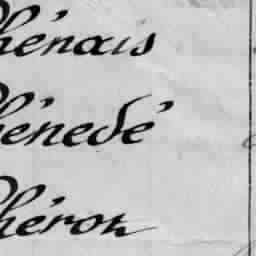 hénais
hénedé
héron